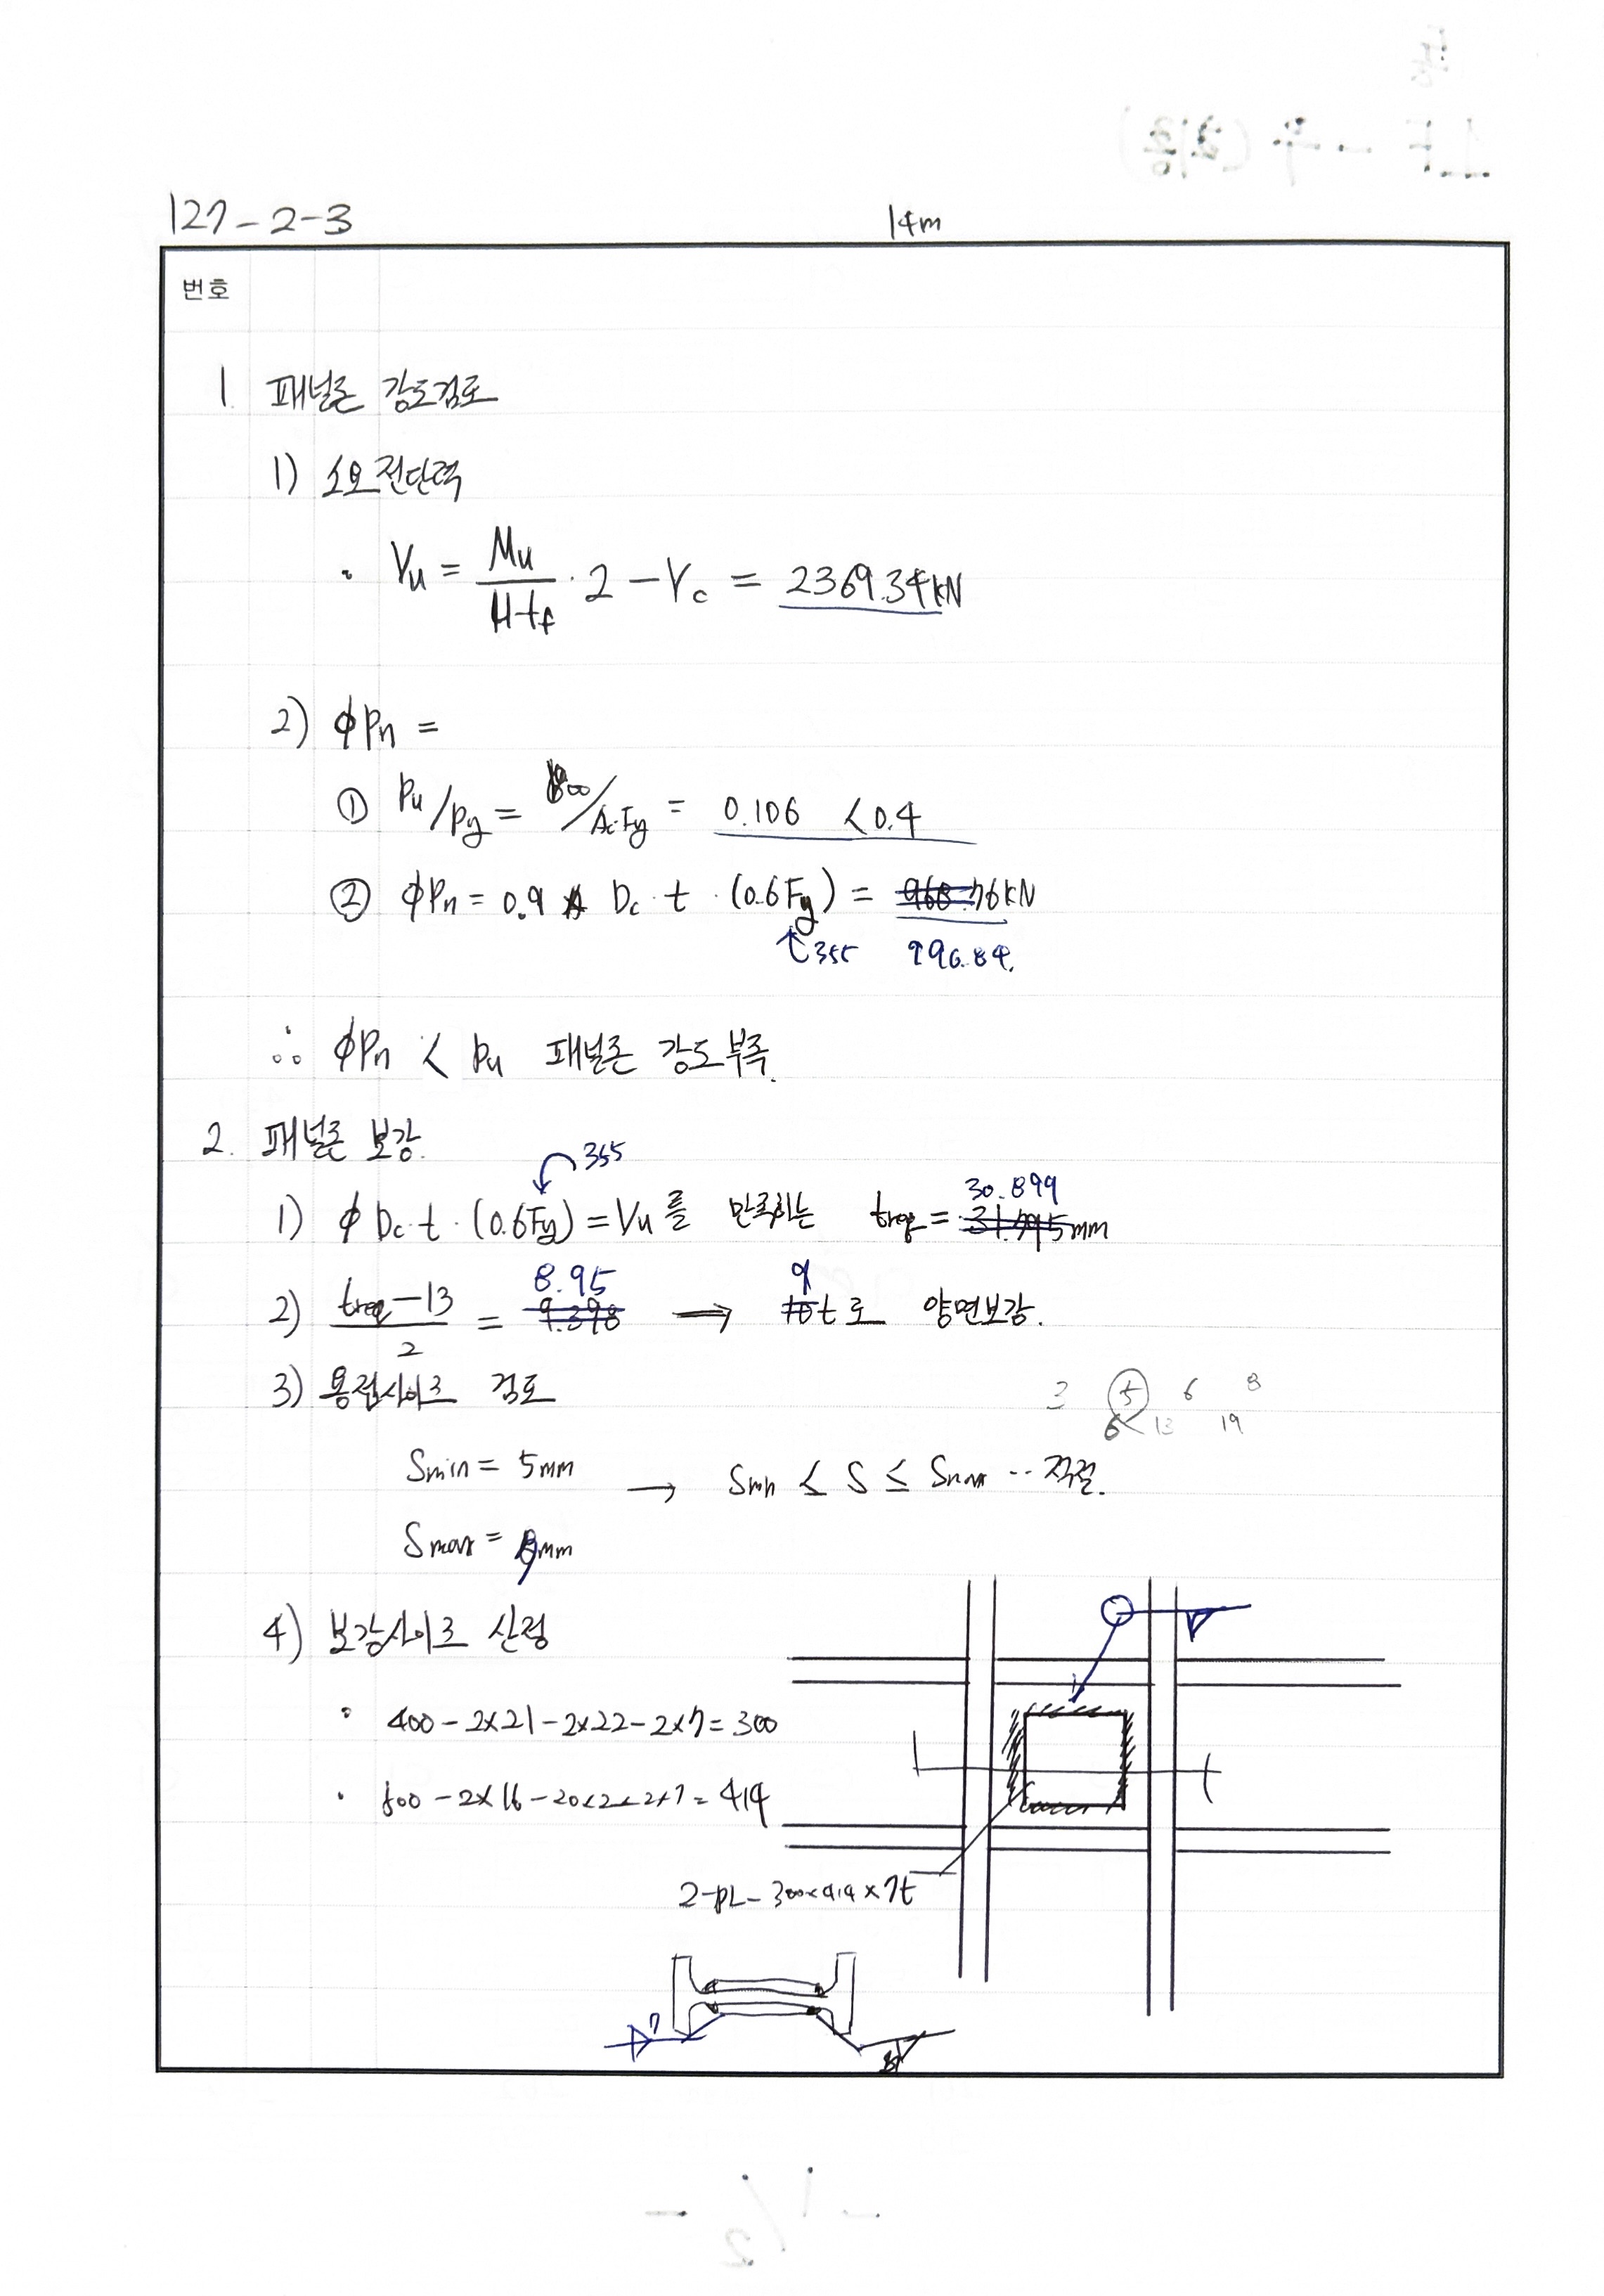 127-2-3
14m
번호
1. 패널존 강도검토
1) 소요전단력
· Vu = Mu / (H-tf) · 2 - Vc = 2369.34kN
2) φPn =
① Pu/Py = /Ac·Fy = 0.106 < 0.4
② φPn = 0.9 Dc · t · (0.6Fy) = 968.76kN
355 996.84.
∴ φPn < Pu 패널존 강도부족.
2. 패널존 보강.
355
30.899
1) φ Dc·t · (0.6Fy) = Vu를 만족하는 treq = 31.795mm
8.95 9
2) (treq - 13) / 2 = 9.398 → 10t로 양면보강.
3) 용접사이즈 검토
3 5 6 8
6 13 19
Smin = 5mm
→ Smin ≤ S ≤ Smax ·· 적절.
Smax = mm
4) 보강사이즈 산정
· 400 - 2×21 - 2×22 - 2×7 = 300
· 500 - 2×16 - 20×2 - 2×7 = 414
2-PL- 300×414×7t
7